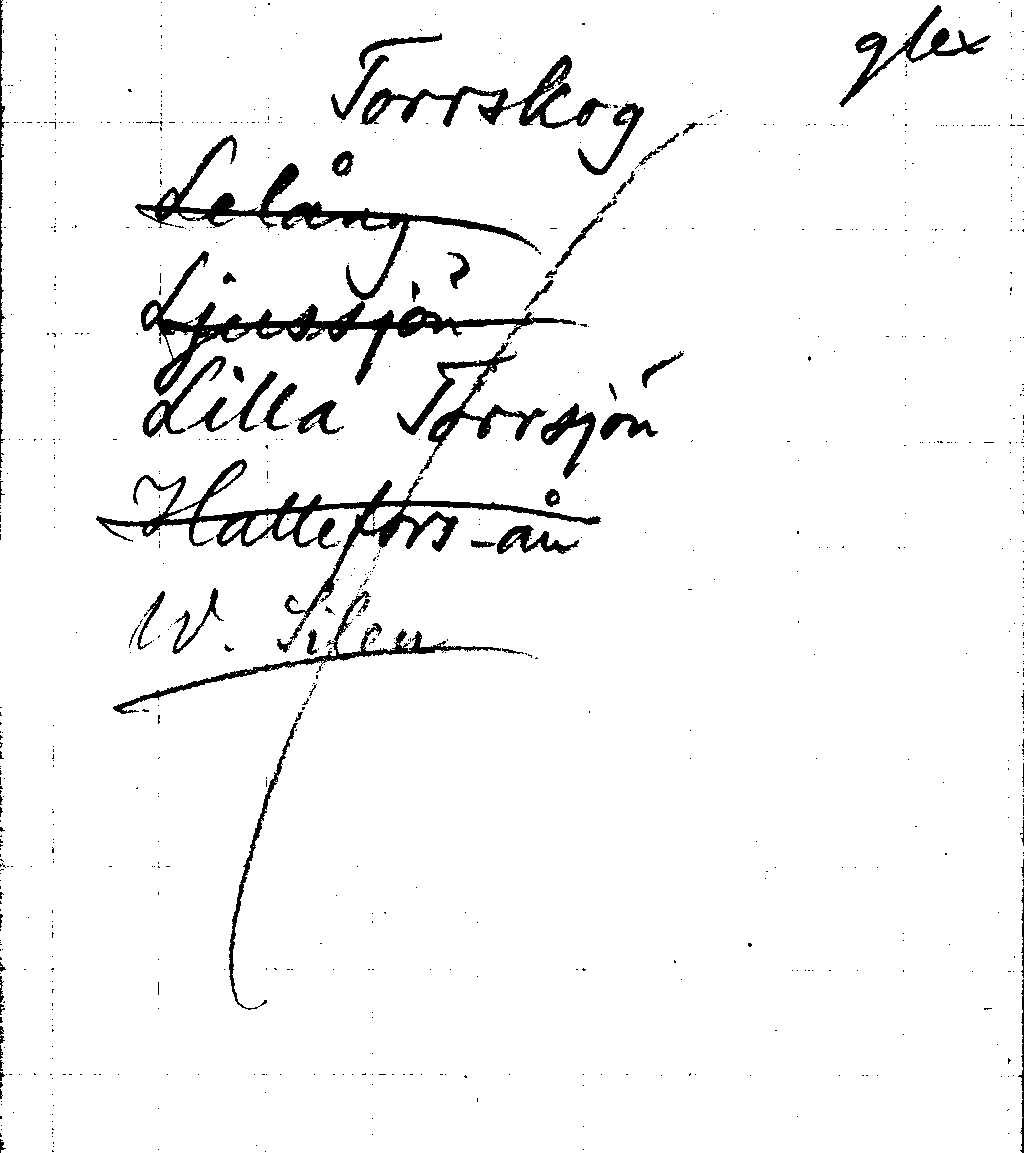 glex
Torrskog
Lelång
Ljussjön?
Lilla Torrsjön
Hattefors-ån
W. Silen